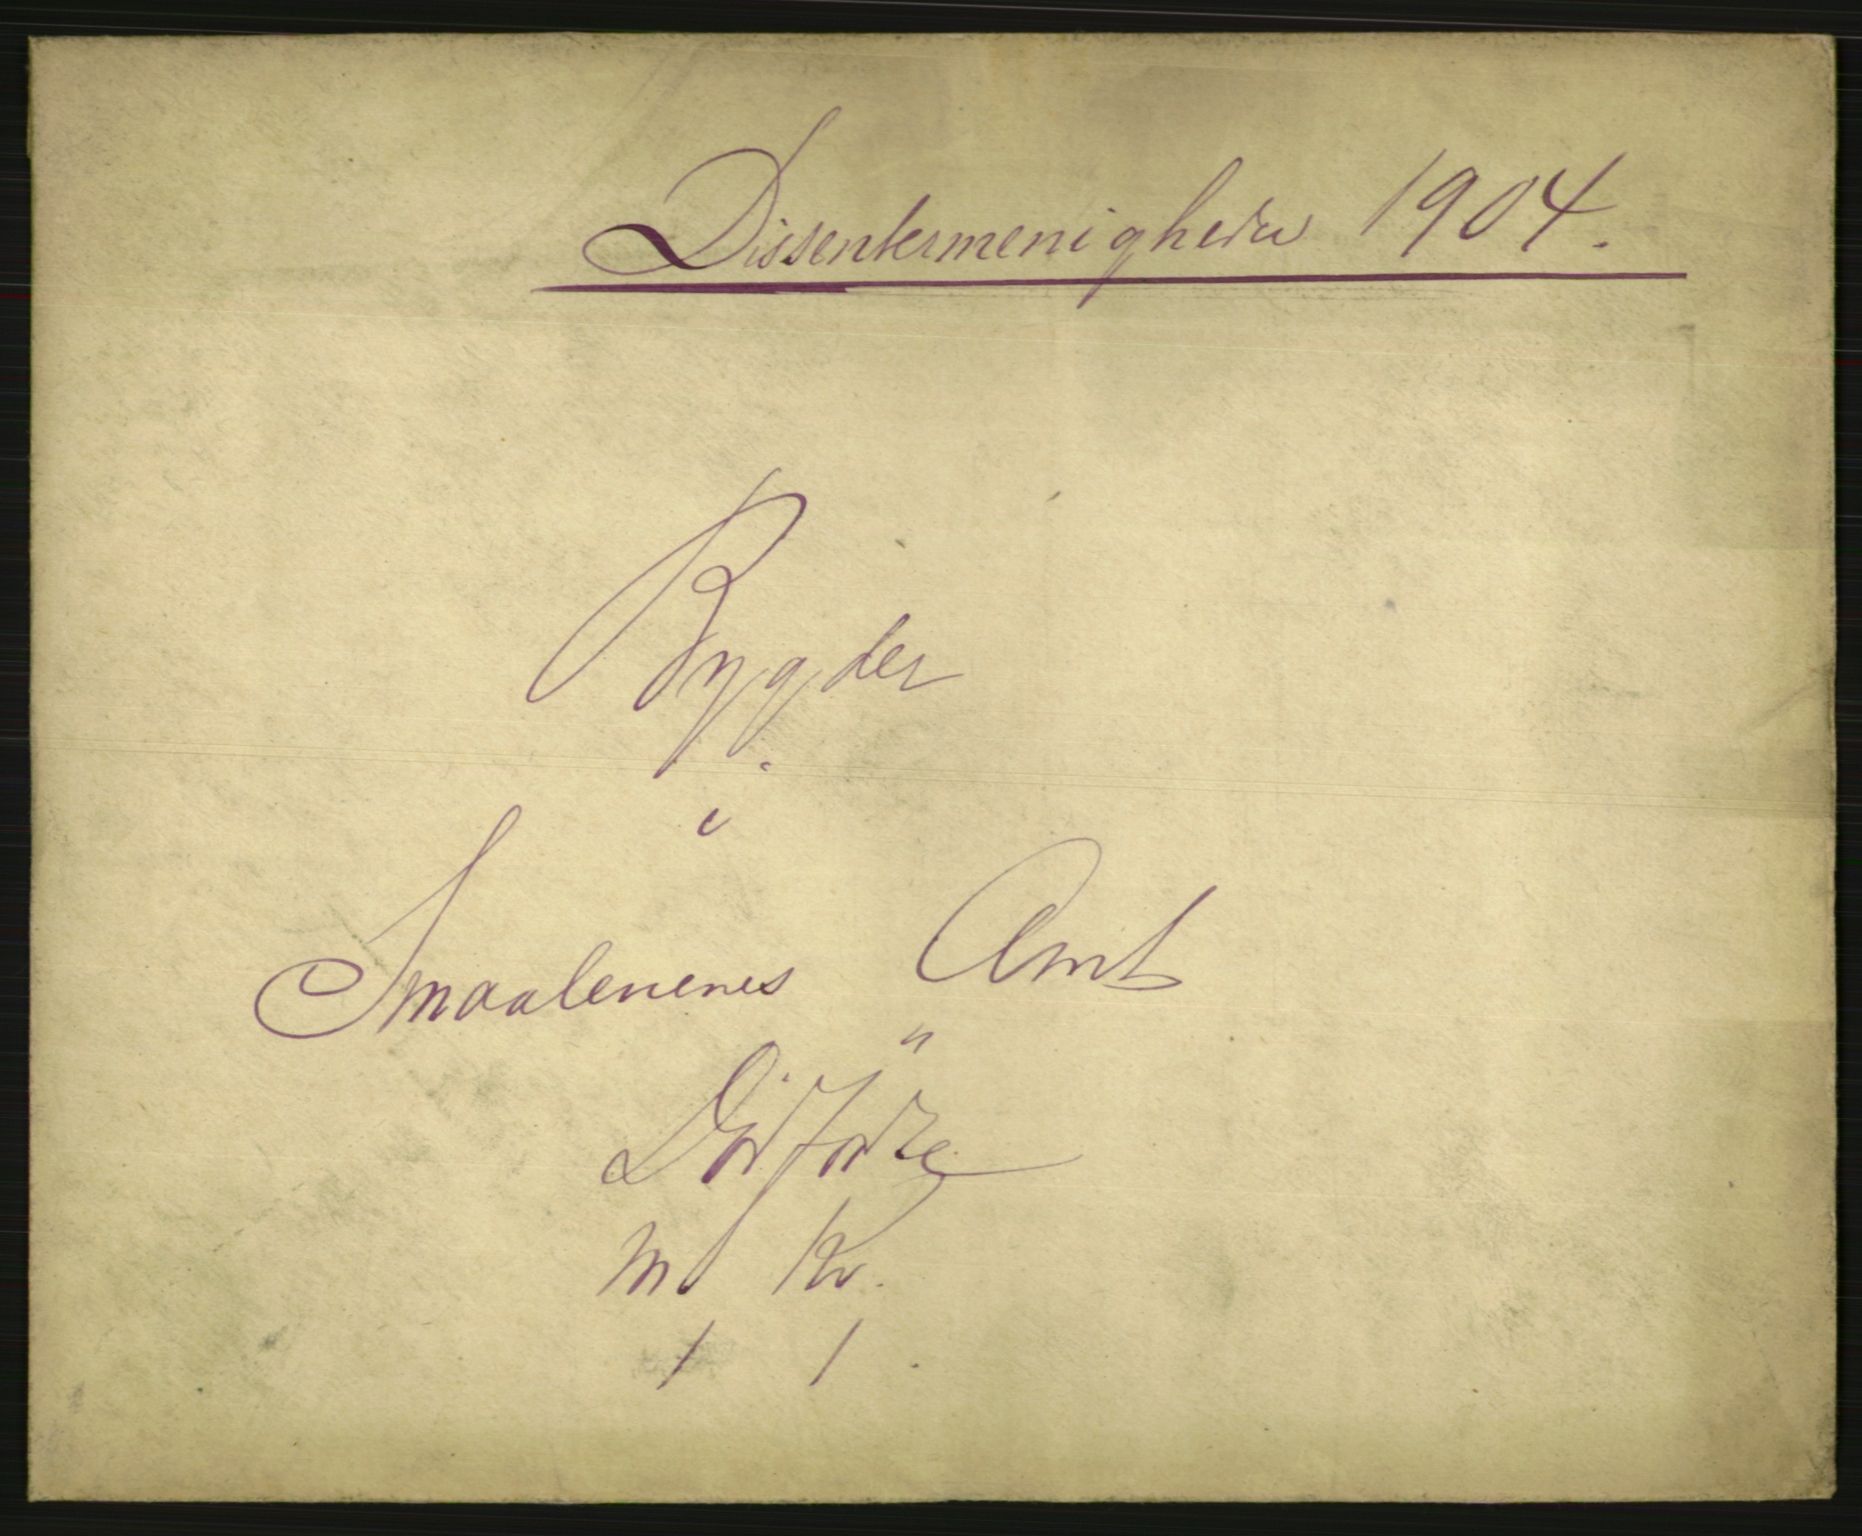 Dissentermenigheder 1904.
Bygder
i
Smaalenenes Amt
"
Dødfødte
M Kv.
1 1.